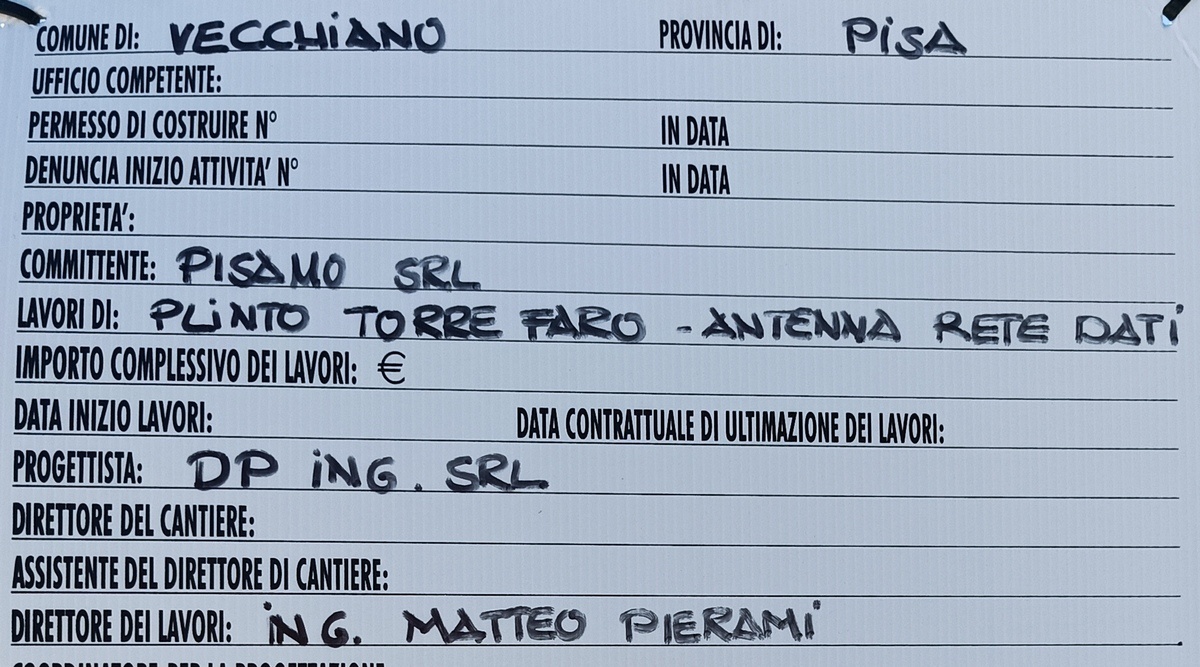 COMUNE DI: VECCHIANO PROVINCIA DI: PISA
UFFICIO COMPETENTE:
PERMESSO DI COSTRUIRE N° IN DATA
DENUNCIA INIZIO ATTIVITA' N° IN DATA
PROPRIETA':
COMMITTENTE: PISAMO SRL
LAVORI DI: PLINTO TORRE FARO - ANTENNA RETE DATI
IMPORTO COMPLESSIVO DEI LAVORI: €
DATA INIZIO LAVORI: DATA CONTRATTUALE DI ULTIMAZIONE DEI LAVORI:
PROGETTISTA: DP ING. SRL
DIRETTORE DEL CANTIERE:
ASSISTENTE DEL DIRETTORE DI CANTIERE:
DIRETTORE DEI LAVORI: ING. MATTEO PIERAMI
COORDINATORE PER LA PROGETTAZIONE